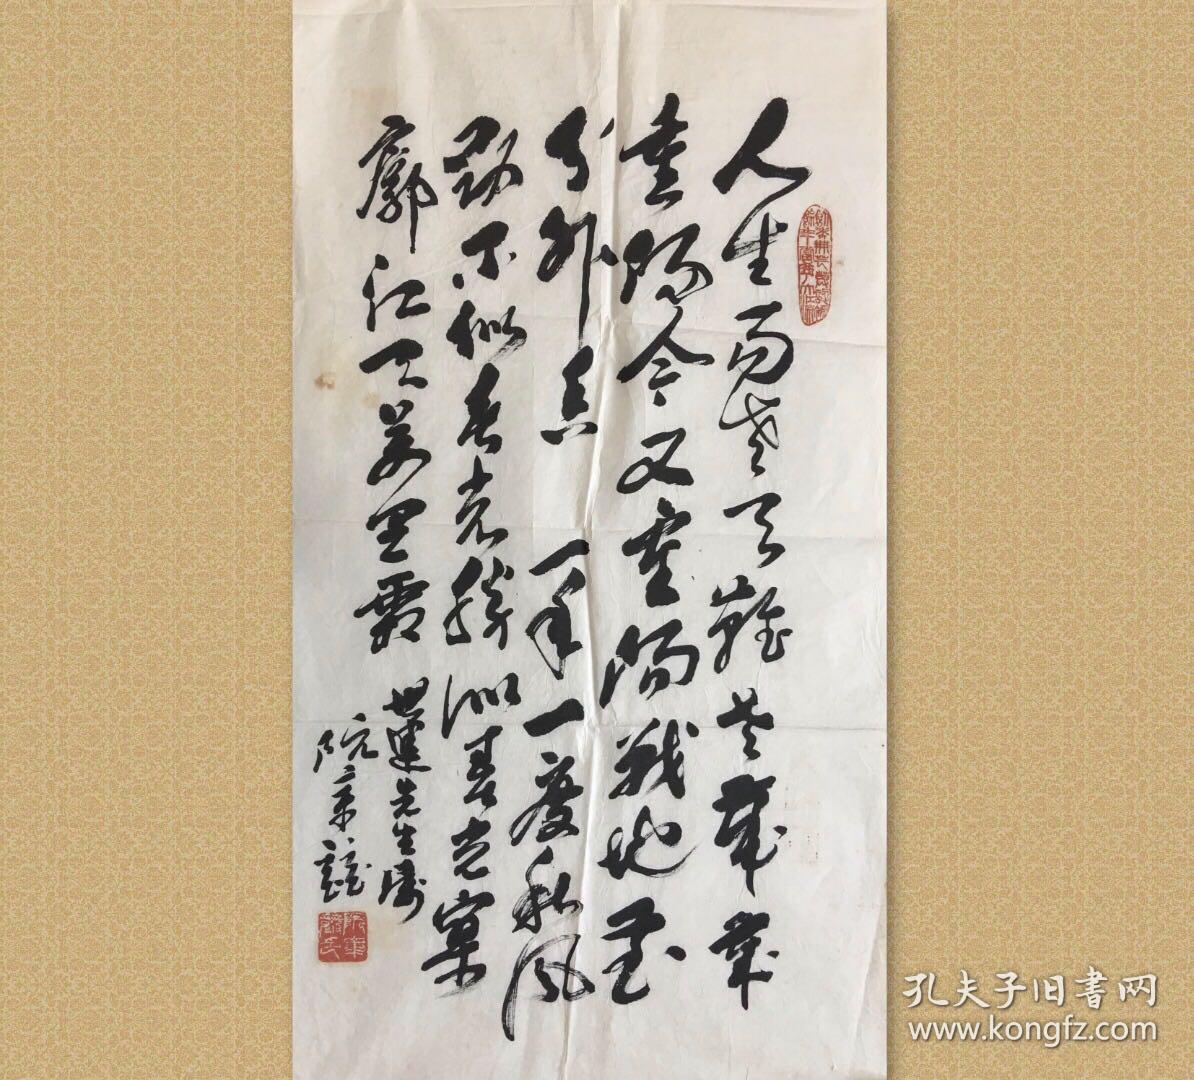 人生易老天難老歲歲
重陽今又重陽戰地黃花
分外香一年一度秋風
勁不似春光勝似春光寥
廓江天萬里霜
世蓮先生囑
阮章競
孔夫子旧書网
www.kongfz.com